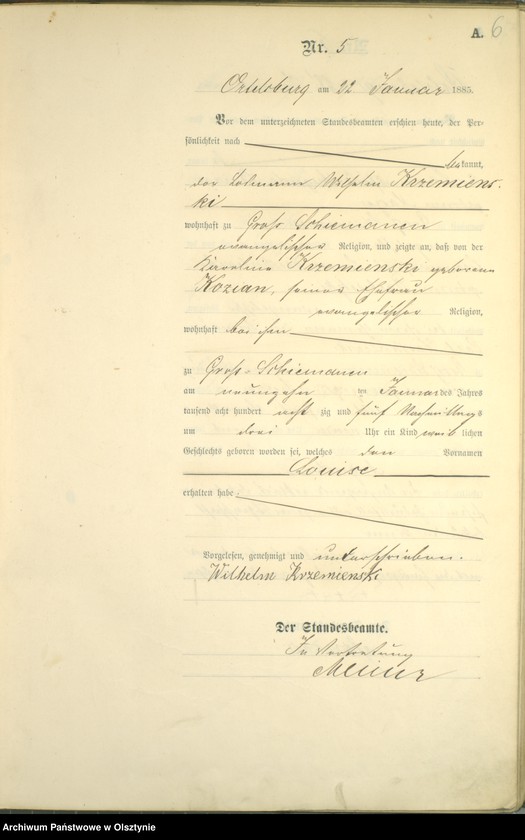 A. 6
Nr. 5
Ortelsburg am 22 Januar 1885.
Vor dem unterzeichneten Standesbeamten erschien heute, der Per-
sönlichkeit nach
bekannt,
der Losmann Wilhelm Krzemiens-
ki
wohnhaft zu Groß Schiemanen
evangelischer Religion, und zeigte an, daß von der
Karoline Krzemienski geborene
Kozian, seiner Ehefrau
evangelischer Religion,
wohnhaft bei ihm
zu Groß-Schiemanen
am neunzehn ten Januar des Jahres
tausend acht hundert acht zig und fünf Nachmittags
um drei Uhr ein Kind weib lichen
Geschlechts geboren worden sei, welches den Vornamen
Louise
erhalten habe.
Vorgelesen, genehmigt und unterschrieben.
Wilhelm Krzemienski
Der Standesbeamte.
In Vertretung
Archiwum Państwowe w Olsztynie